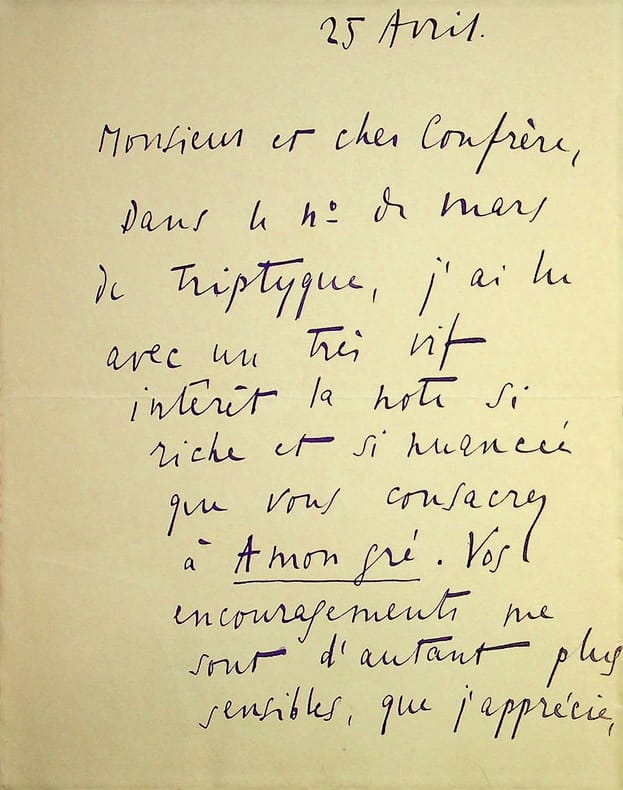 25 Avril.
Monsieur et cher Confrère,
Dans le nº de mars
de Triptyque, j'ai lu
avec un très vif
intérêt la note si
riche et si nuancée
que vous consacrez
à A mon gré. Vos
encouragements me
sont d'autant plus
sensibles, que j'apprécie,